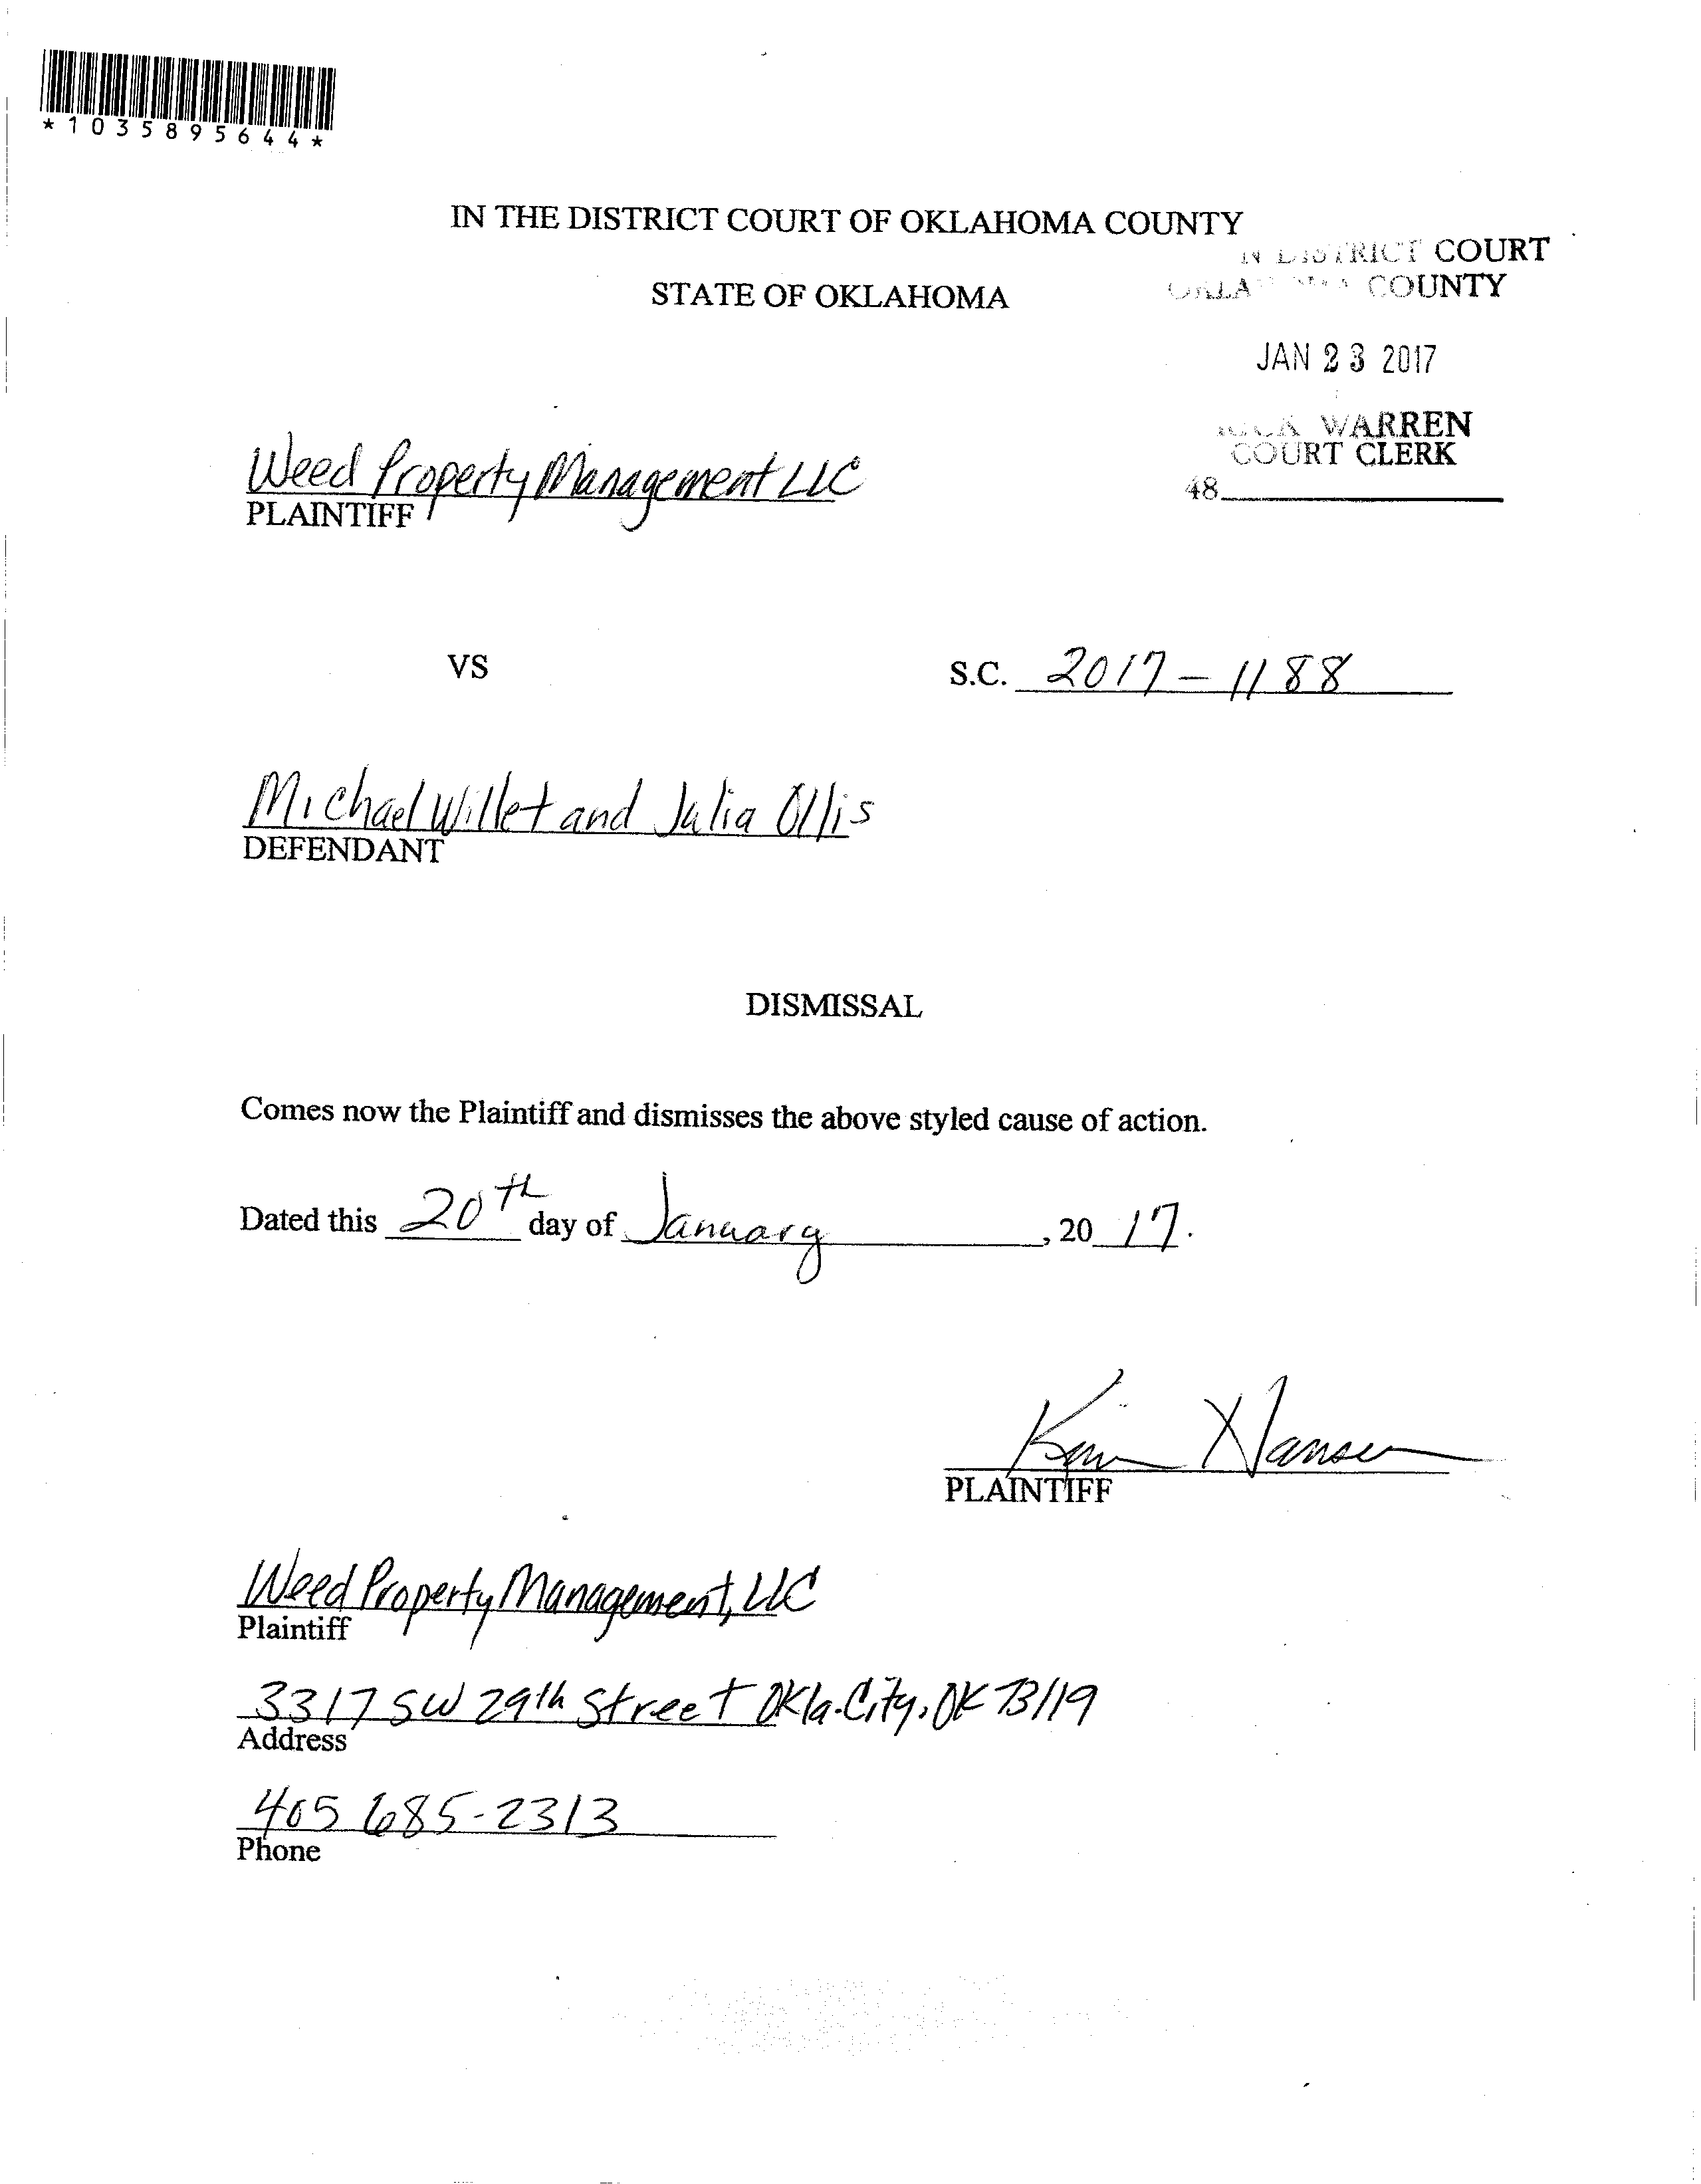 *1035895644*
IN THE DISTRICT COURT OF OKLAHOMA COUNTY
DISTRICT COURT
STATE OF OKLAHOMA
COUNTY
JAN 23 2017
WARREN
COURT CLERK
48
Weed Property Management LLC
PLAINTIFF
VS
S.C. 2017-1188
Michael Willet and Julia Ollis
DEFENDANT
DISMISSAL
Comes now the Plaintiff and dismisses the above styled cause of action.
Dated this 20th day of January, 2017.
Kim Hansen
PLAINTIFF
Weed Property Management, LLC
Plaintiff
3317 SW 29th Street Okla. City, OK 73119
Address
405 685-2313
Phone